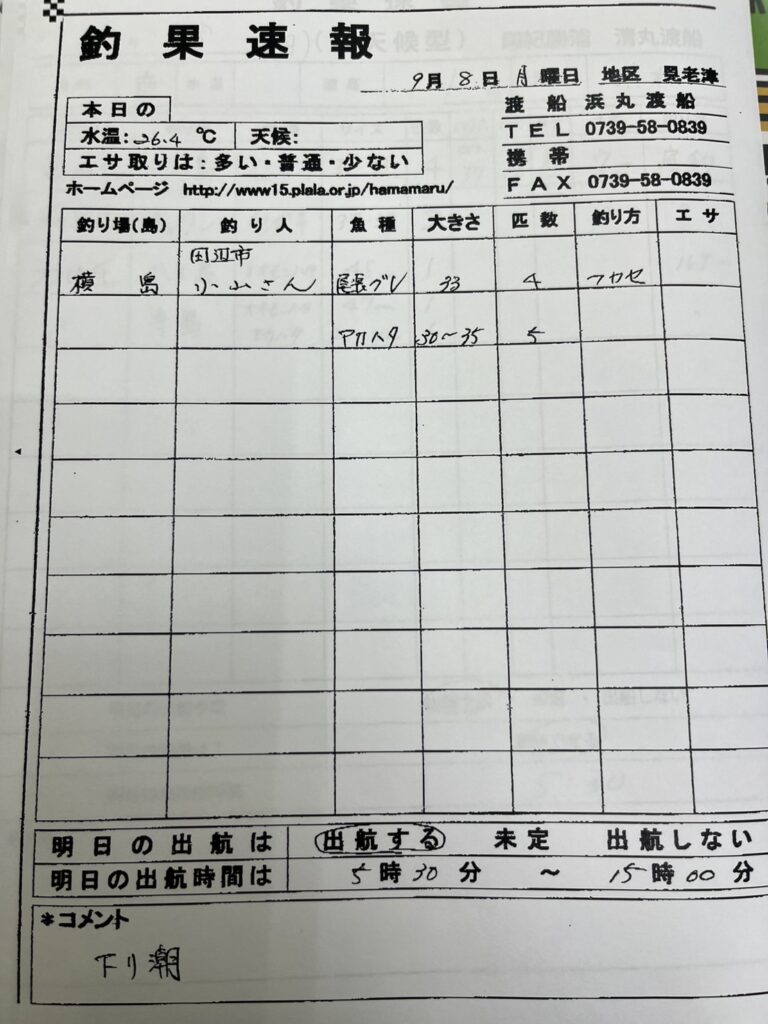 釣果速報
9月8日月曜日 地区 見老津
本日の
水温:26.4℃ 天候:
エサ取りは:多い・普通・少ない
ホームページ http://www15.plala.or.jp/hamamaru/
渡船 浜丸渡船
TEL 0739-58-0839
携帯
FAX 0739-58-0839
釣り場(島) 釣り人 魚種 大きさ 匹数 釣り方 エサ
田辺市
横島 小山さん 尾長グレ 33 4 フカセ
アカハタ 30~35 5
明日の出航は 出航する 未定 出航しない
明日の出航時間は 5時30分 ~ 15時00分
*コメント
下り潮